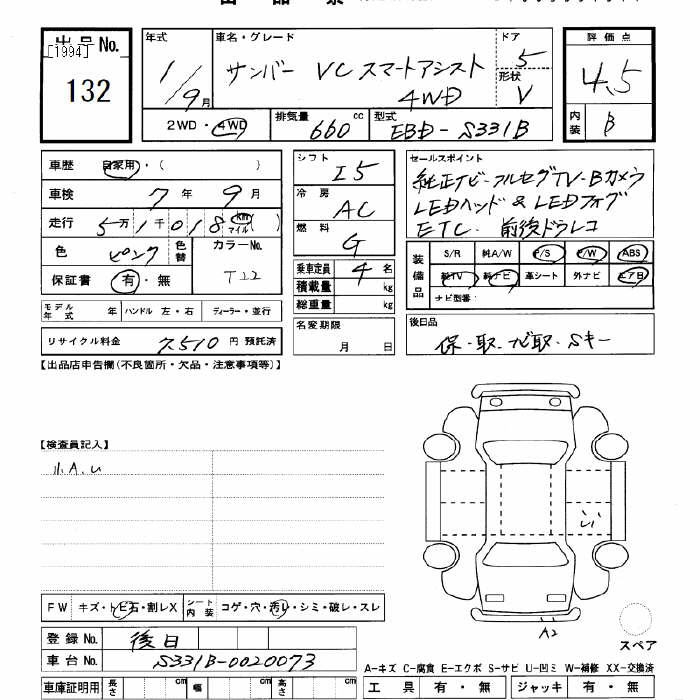 出品No.
[1994]
132
年式
1/9月
車名・グレード
サンバー VC スマートアシスト
4WD
ドア
5
形状
V
評価点
4.5
内装
B
2WD・4WD
排気量
660 cc
型式
EBD-S331B
車歴 自家用・( )
車検 7年 9月
走行 5万1千018 km マイル ( )
色 ピンク
色替
カラーNo.
T22
保証書 有・無
シフト
I5
冷房
AC
燃料
G
乗車定員 4名
積載量 kg
総重量 kg
セールスポイント
純正ナビ-フルセグTV-Bカメラ
LEDヘッド & LEDフォグ
ETC. 前後ドラレコ
装備品
S/R 純A/W P/S P/W ABS
純TV 純ナビ 革シート 外ナビ エアB
ナビ型番:
モデル年式 年 ハンドル 左・右 ディーラー・並行
名変期限
月 日
後日品
保・取・ナビ取・Sキー
リサイクル料金 7510 円 預託済
【出品店申告欄(不良箇所・欠品・注意事項等)】
【検査員記入】
小A.U
FW キズ・トビ石・割レX
シート内装 コゲ・穴・汚レ・シミ・破レ・スレ
A2
スペア
登録No. 後日
車台No. S331B-0020073
A-キズ C-腐食 E-エクボ S-サビ U-凹ミ W-補修 XX-交換済
車庫証明用 長さ cm 幅 cm 高さ cm
工具 有・無 ジャッキ 有・無